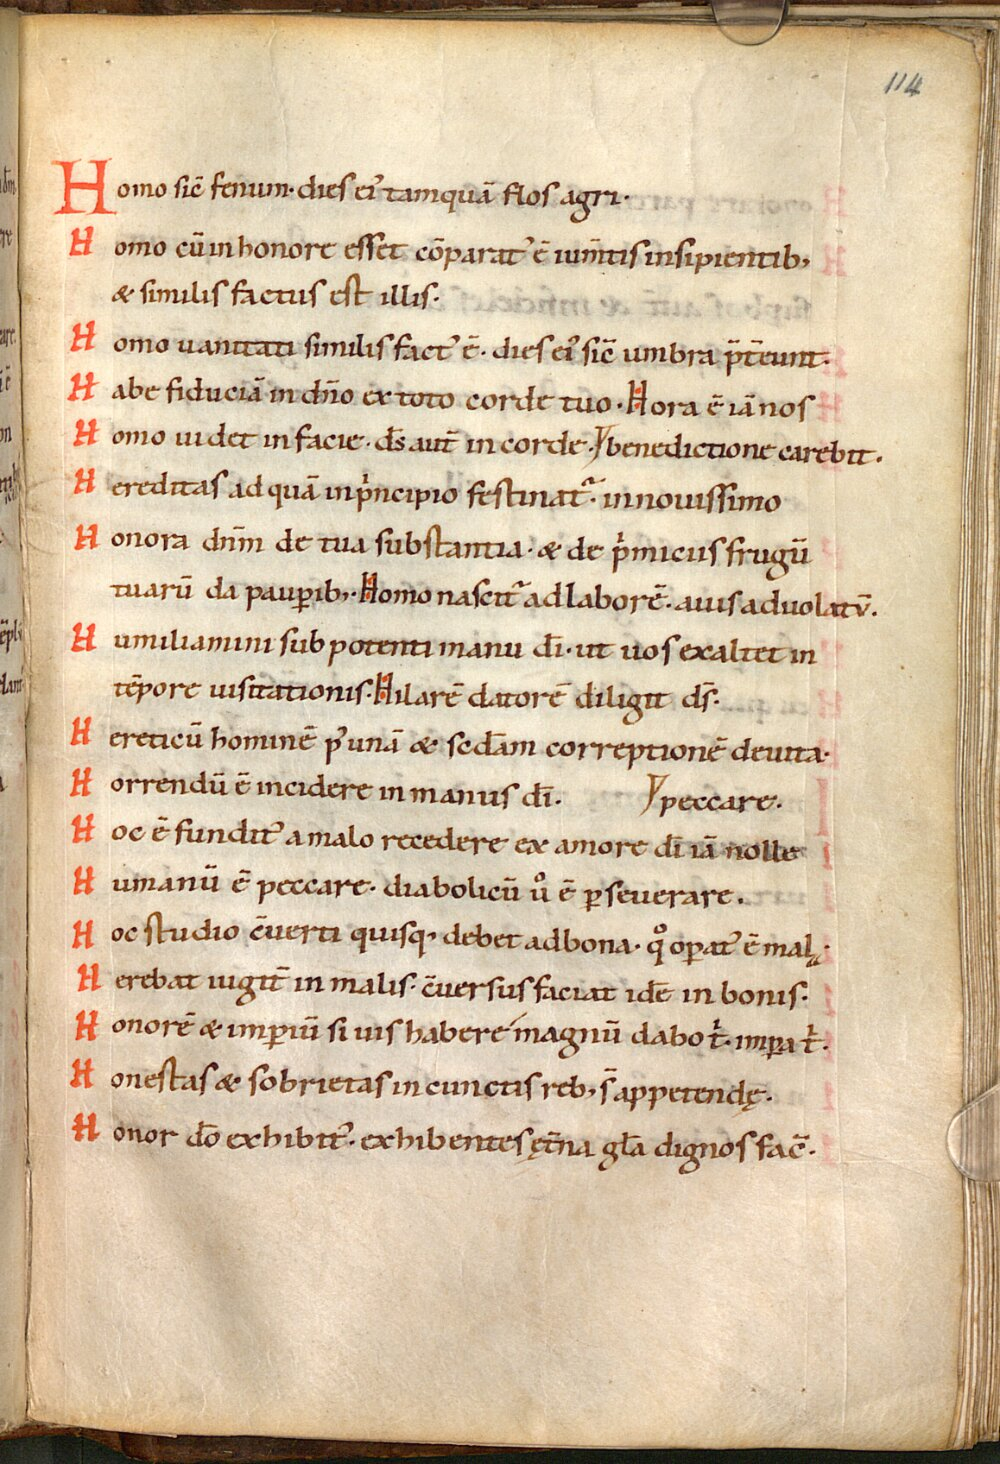 114
Homo sic̄ fenum· dies ei᾽ tamquā flos agri·
Homo cū in honore esset cōparat᾽ ē ium̄tis insipientib;
& similis factus est illis·
Homo uanitati similis fact᾽ ē· dies ei᾽ sic̄ umbra p̄t̄eunt·
Habe fiduciā in dn̄o ex toto corde tuo· Hora ē iā nos
Homo uidet in facie· ds̄ aut̄ in corde· benedictione carebit·
Hereditas ad quā in p̍ncipio festinat᾽· in nouissimo
Honora dnm̄ de tua substantia· & de p̍miciis frugū
tuarū da paup̱ib;· Homo nascit᾽ ad laborē· auis ad uolatū·
Humiliamini sub potenti manu dī· ut uos exaltet in
tēpore uisitationis· Hilarē datorē diligit ds̄·
Hereticū hominē p᾽ unā & scd̄am correptionē deuita·
Horrendū ē incidere in manus dī· peccare·
Hoc ē fundit᾽ a malo recedere ex amore dī iā nolle
Humanū ē peccare· diabolicū ů ē p̱seuerare·
Hoc studio c̄uerti quisq; debet ad bona· q̊ op̱at᾽ ē mala·
Herebat iugit̄ in malis· c̄uersus faciat idē in bonis·
Honorē & imp̱iū si uis habere magnū dabo t̍· imp̱a t̍·
Honestas & sobrietas in cunctis reb; s̄ appetendę·
Honor dō exhibit᾽· exhibentes ęt̄na gl̄a dignos fac̄·